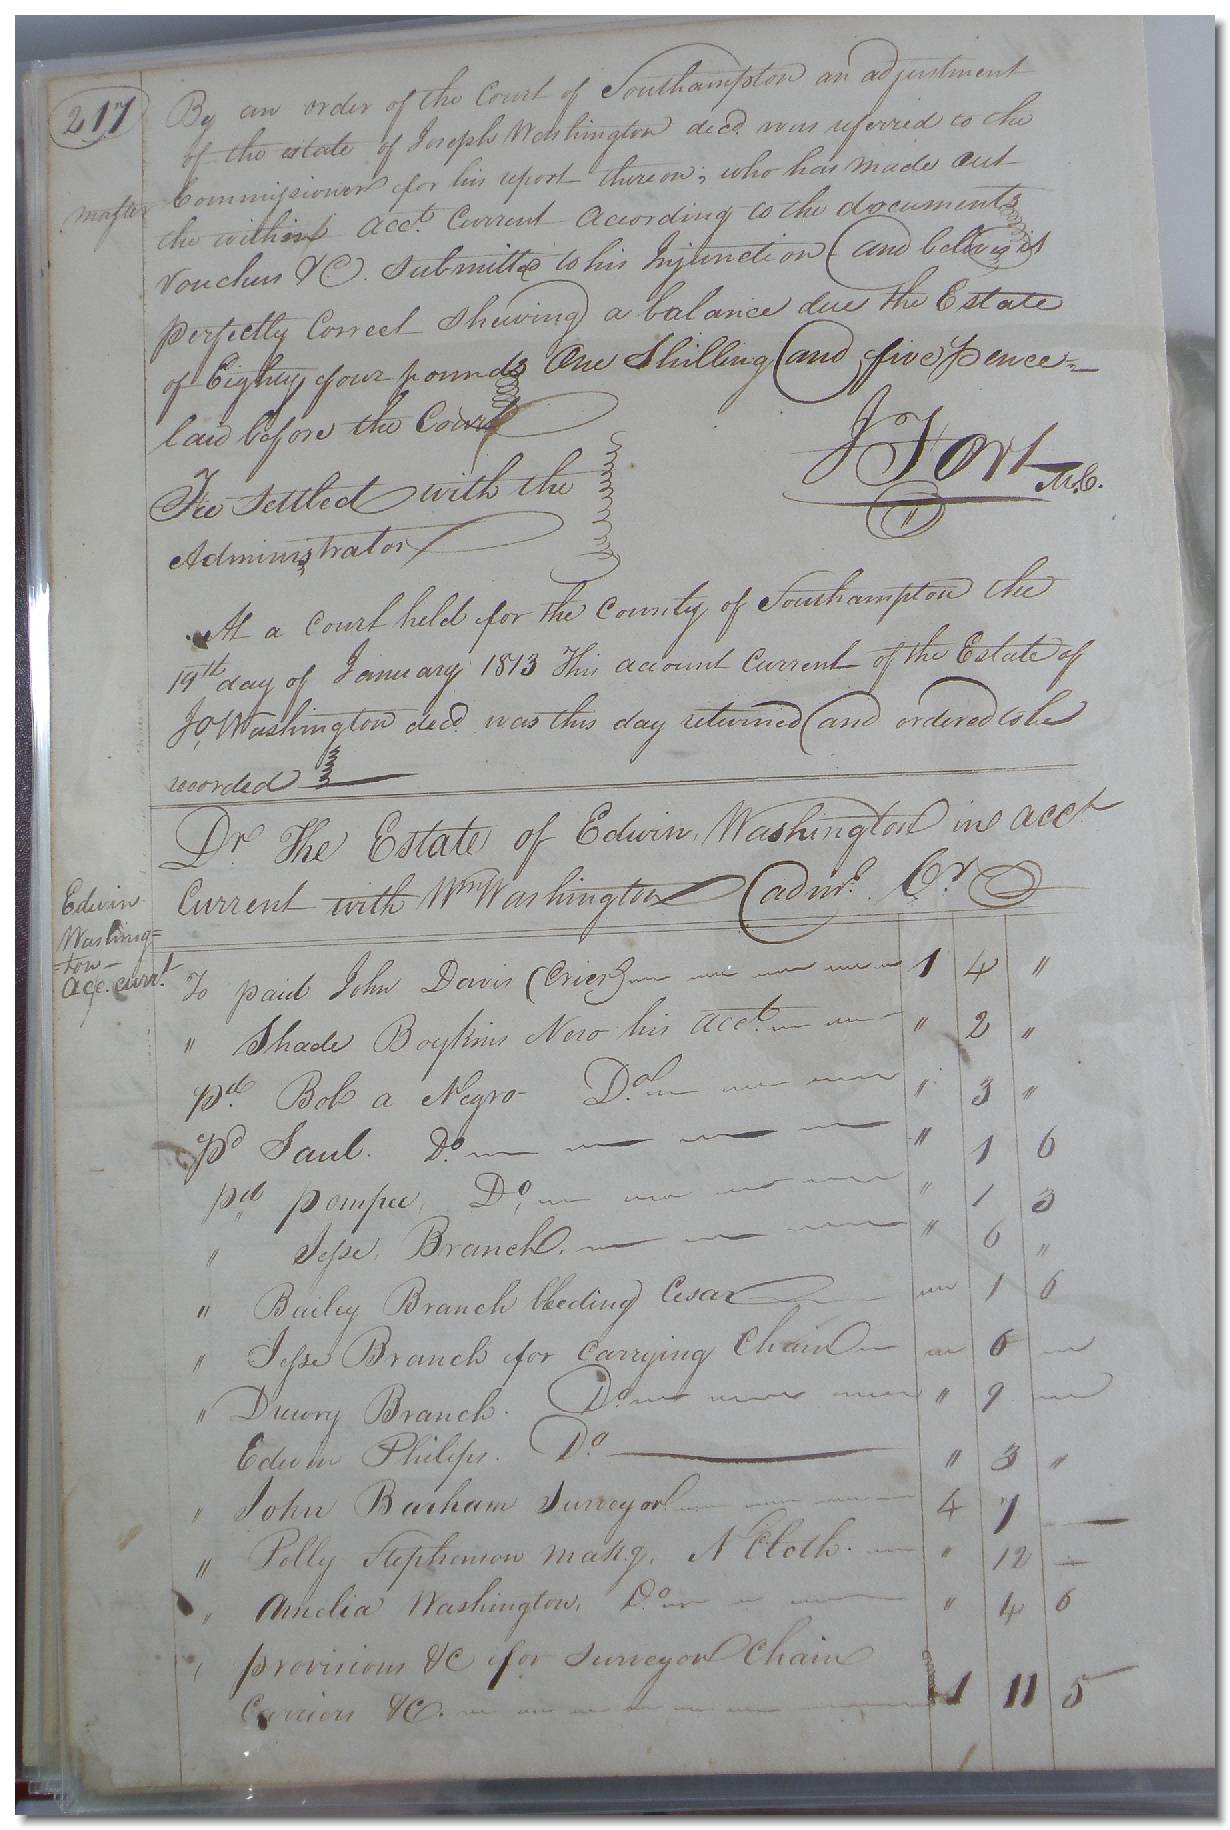 217
By an order of the Court of Southampton an adjustment
of the estate of Joseph Washington decd. was referred to the
master Commissioner for his report thereon; who has made out
the within acct. Current According to the documents
Vouchers &C. Submitted to his Injunction (and believes it
perfectly Correct Shewing a balance due the Estate
of Eighty four pounds One Shilling (and five pence =
laid before the Court
J Fort M.C.
Fee Settled with the
Administrator
At a Court held for the County of Southampton the
19th day of January 1813 This account Current of the Estate of
Jo. Washington decd. was this day returned (and ordered to be
recorded
Dr. The Estate of Edwin Washington in acct
Current with Wm Washington (admr. Cr
Edwin
Washing=
=ton
acc. curt.
To paid John Davis (Crier) 1 4 "
" Shade Boykins Nero his acct. " 2 "
pd. Bob a Negro Do. " 3 "
pd Saul. Do. " 1 6
pd. pompee, Do. " 1 3
" Jesse Branch. " 6 "
" Bailey Branch bleeding Cesar 1 6
" Jesse Branch for Carrying Chain 6
" Drewry Branch. Do. " 9
Edwin Philips. Do " 3 "
" John Barham Surveyor 4 7 —
" Polly Stephenson makg. N Cloth. " 12 —
" Amelia Washington, Do. " 4 6
" provisions &C for Surveyor Chain
Carriers &C. 1 11 5